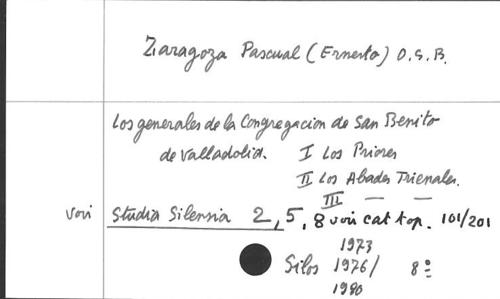 Zaragoza Pascual (Ernesto) O.S.B.
Los generales de la Congregacion de San Benito
de Valladolid. I Los Priores
II Los Abades Trienales.
III — —
voir Studia Silensia 2, 5, 8 voir cat top. 101/201
1973
Silos 1976/ 8º
1980